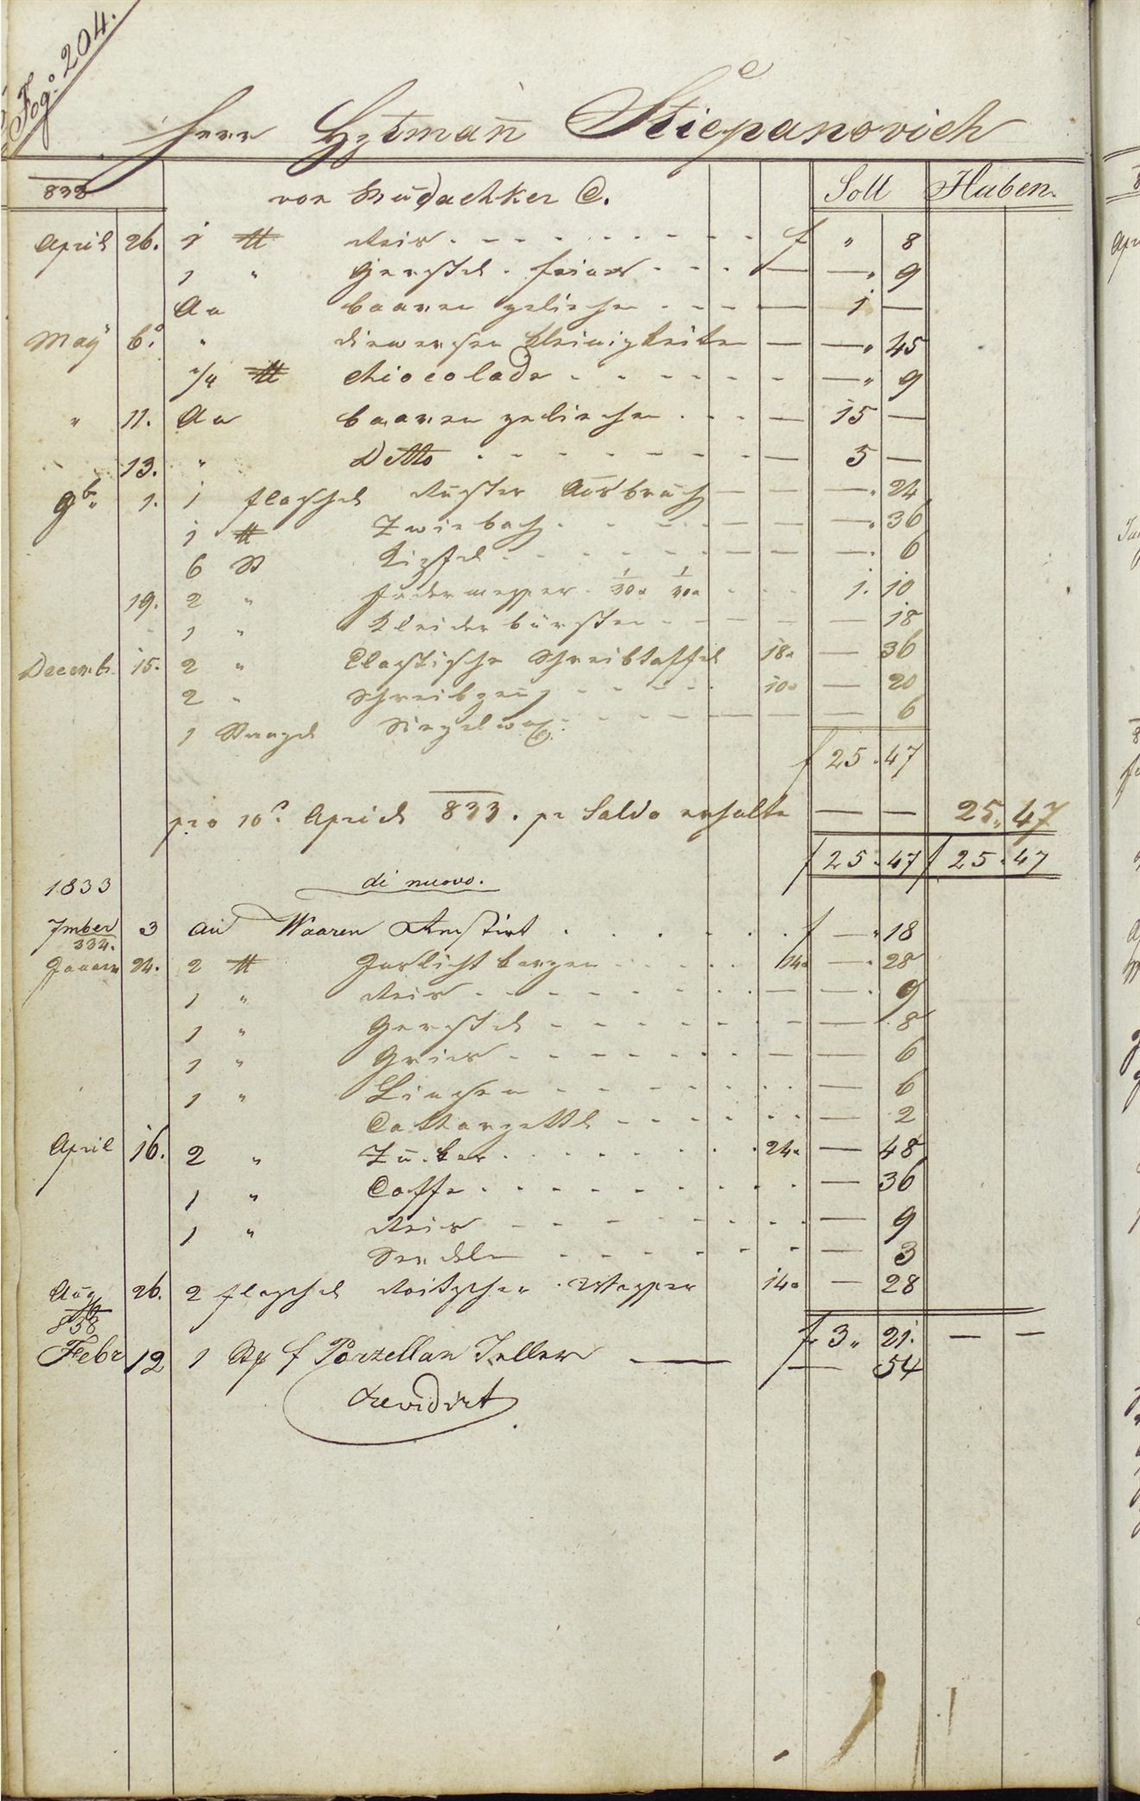 Fog: 204.
Herr Hptmañ Stiepanovich
von Budachker C.
Soll Haben
832
April 26. 1 ℔ Reis f " 8
1 " Gerstel feines — —" 9
An baaren geliehen — 1 —
May 6. " diversen Kleinigkeiten — —" 45
1/4 ℔ Chiocolade — —" 9
" 11. An baaren geliehen — 15 —
13. " Detto — 5 —
9b. 1. 1 flaschel Ruster Ausbruch —" 24
1 ℔ Zwieback — — 36
6 St Kipfel — — 6
19. 2 " Federmesser 1/30x 1/40x 1. 10
1 " Kleiderbürsten — 18
Decemb. 15. 2 " Elastische Schreibtaffel 18x — 36
2 " Schreibzeug 10x — 20
1 Stangel Siegelwax — 6
f 25 . 47
pro 10. April 833. pr Saldo erhalte — — 25„ 47
f 25 . 47 f 25 . 47
1833 di nuovo.
7mber 3 an Waaren Restirt f —" 18
834.
Januar 24. 2 ℔ Gußlichtkerzen 14x — 28
1 " Reis — — 9
1 " Gerstel — — 8
1 " Gries — — 6
1 " Linsen — 6
— 2
April 16. 2 " Zucker 24x — 48
1 " Caffe — 36
1 " Reis — 9
— 3
Aug 26. 2 flaschel Roitscher Wasser 14x — 28
f 3„ 21. — —
838
Febr 12 1 St f Porzellan Teller — — 54
Revidirt